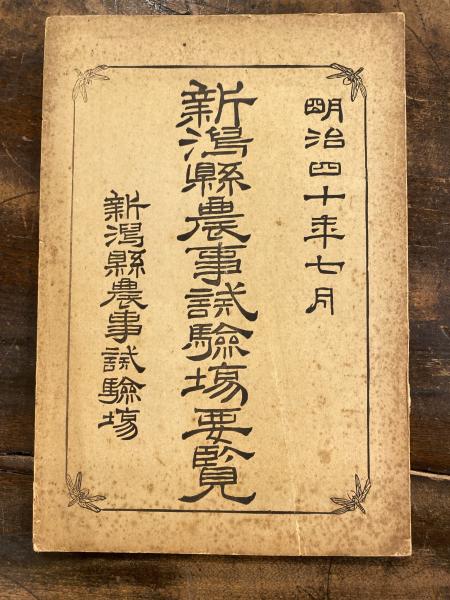 明治四十年七月
新潟縣農事試驗場要覽
新潟縣農事試驗場